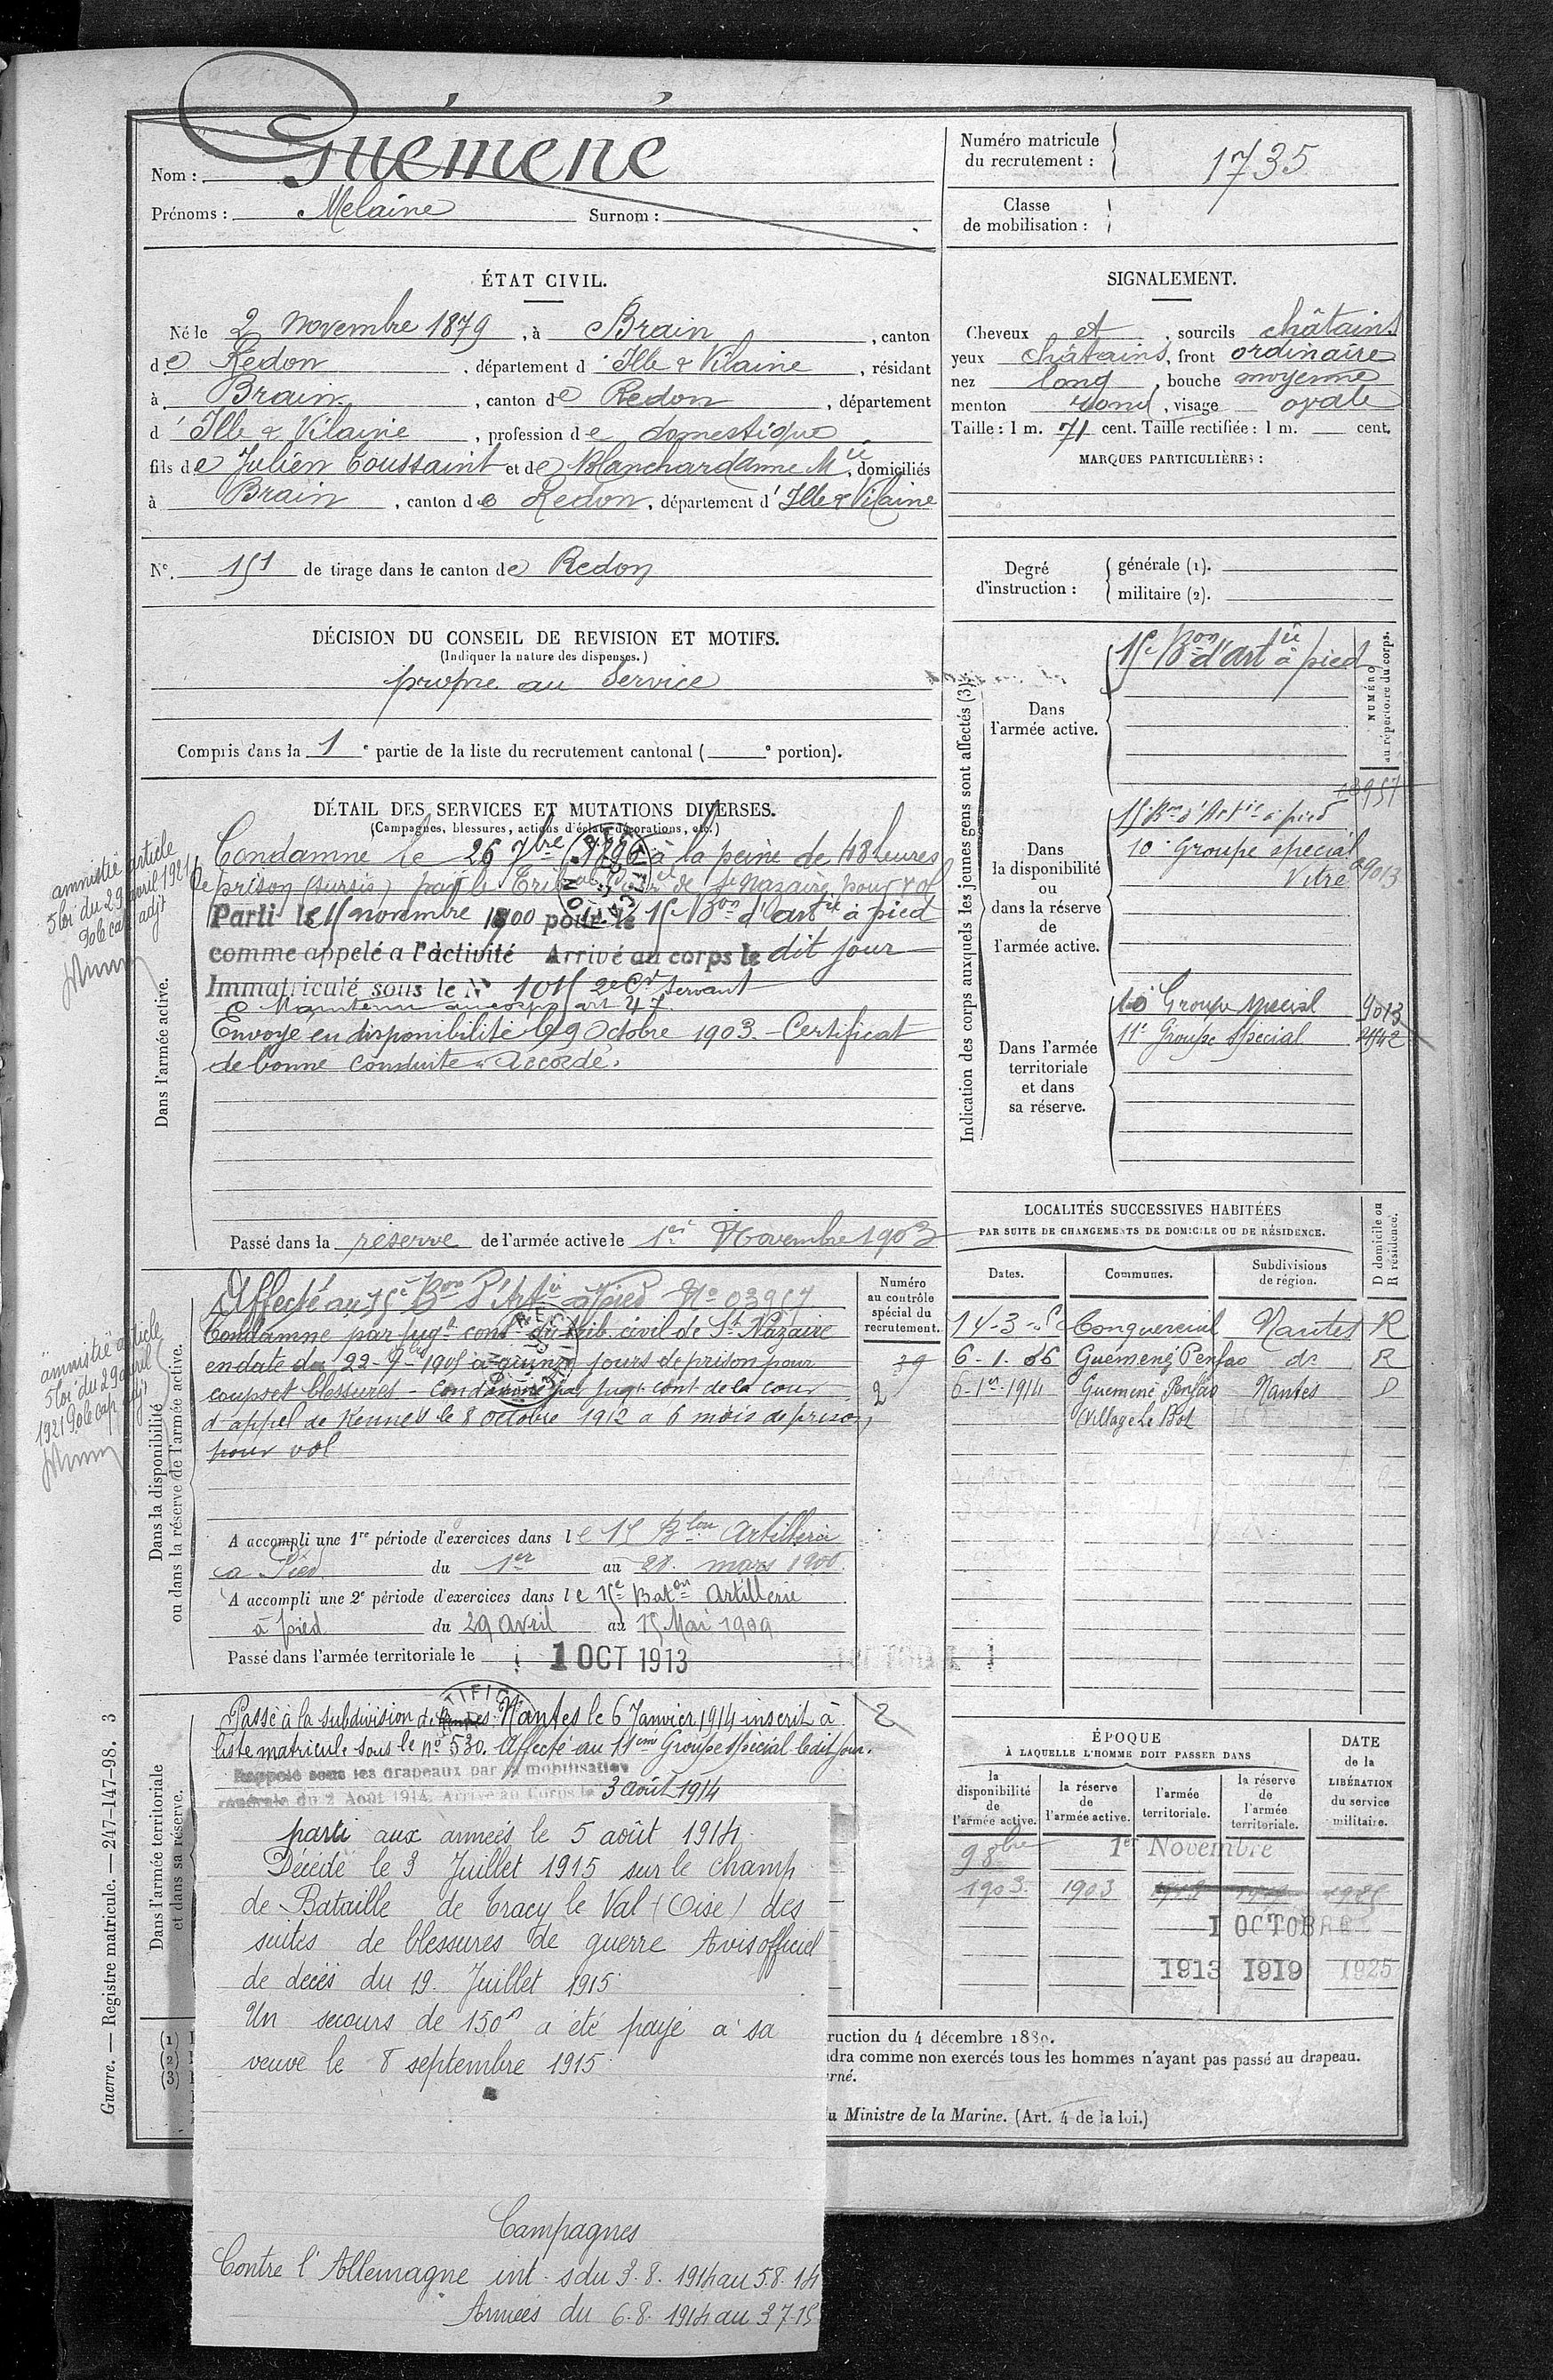 Nom : Guémené
Prénoms : Melaine Surnom :
Numéro matricule du recrutement : 1735
Classe de mobilisation :
ÉTAT CIVIL.
Né le 2 novembre 1879, à Brain, canton
de Redon, département d'Ille & Vilaine, résidant
à Brain, canton de Redon, département
d'Ille & Vilaine, profession de domestique
fils de Julien Toussaint et de Blanchard Anne Mie, domiciliés
à Brain, canton de Redon, département d'Ille & Vilaine
N° 151 de tirage dans le canton de Redon
SIGNALEMENT.
Cheveux et, sourcils châtains
yeux châtains, front ordinaire
nez long, bouche moyenne
menton rond, visage ovale
Taille : 1 m. 71 cent. Taille rectifiée : 1 m. cent.
MARQUES PARTICULIÈRES :
Degré d'instruction : générale (1).
militaire (2).
DÉCISION DU CONSEIL DE REVISION ET MOTIFS.
(Indiquer la nature des dispenses.)
propre au Service
Compris dans la 1e partie de la liste du recrutement cantonal ( e portion).
DÉTAIL DES SERVICES ET MUTATIONS DIVERSES.
(Campagnes, blessures, actions d'éclat, décorations, etc.)
Dans l'armée active.
amnistié article
5 loi du 29 avril 1921
Condamné le 26 7bre à la peine de 48 heures
de prison (sursis) par le de St Nazaire pour vol
Parti le 15 novembre 1900 pour le 15e Bon d'artie à pied
comme appelé a l'activité Arrivé au corps le dit jour
Immatriculé sous le N° 2e Ct servant
Maintenu au corps art 47.
Envoyé en disponibilité le 9 Octobre 1903. Certificat
de bonne conduite "Accordé".
Passé dans la réserve de l'armée active le 1er Novembre 1903
Dans la disponibilité
ou dans la réserve de l'armée active.
amnistié article
5 loi du 29 avril
1921
Numéro au contrôle spécial du recrutement.
Affecté au 15e Bon d'Artie à pied No 03957
Condamné par jugt cont du trib. civil de St Nazaire
en date du 22-9-1905 à quinze jours de prison pour
coups et blessures - Condamné par jugt cont de la cour
d'appel de Rennes le 8 octobre 1912 a 6 mois de prison
pour vol
2
A accompli une 1re période d'exercices dans le 15 Blon Artillerie
a Pied du 1er au mars
A accompli une 2e période d'exercices dans le 15e Baton Artillerie
à pied du 29 Avril au 15 Mai 1909
Passé dans l'armée territoriale le 1 OCT 1913
Dans l'armée territoriale
et dans sa réserve.
Passé à la subdivision de Nantes le 6 Janvier 1914 inscrit à
liste matricule sous le no 530. Affecté au 11eme Groupe spécial ledit jour.
2
Rappelé sous les drapeaux par la mobilisation
générale du 2 Août 1914. Arrivé au Corps le 3 août 1914
parti aux armées le 5 août 1914.
Décédé le 3 Juillet 1915 sur le champ
de Bataille de Tracy le Val (Oise) des
suites de blessures de guerre Avis officiel
de décès du 19. Juillet 1915.
Un secours de 150f a été payé à sa
veuve le 8 septembre 1915.
Campagnes
Contre l'Allemagne int. s du 3.8.1914 au 5.8.14
Armées du 6.8.1914 au 3.7.15
Indication des corps auxquels les jeunes gens sont affectés (3).
NUMÉRO au répertoire du corps.
Dans l'armée active.
15e Bon d'artie à pied
Dans la disponibilité ou dans la réserve de l'armée active.
15e Bon d'Artie à pied
10e Groupe spécial
Vitré
Dans l'armée territoriale et dans sa réserve.
10e Groupe spécial 9013
11e Groupe spécial
LOCALITÉS SUCCESSIVES HABITÉES
PAR SUITE DE CHANGEMENTS DE DOMICILE OU DE RÉSIDENCE.
Dates. Communes. Subdivisions de région. D domicile ou R résidence.
14-3-05 Conquereuil Nantes R
6-1.06 Guémené Penfao do R
6-1er-1914 Guémené Penfao Nantes D
Village Le Bot
ÉPOQUE
À LAQUELLE L'HOMME DOIT PASSER DANS
DATE de la LIBÉRATION du service militaire.
la disponibilité de l'armée active.
la réserve de l'armée active.
l'armée territoriale.
la réserve de l'armée territoriale.
9 8bre 1er Novembre
1903 1903
1 OCTOBRE
1913 1919 1925
(1)
(2)
(3)
ruction du 4 décembre 1889.
ndra comme non exercés tous les hommes n'ayant pas passé au drapeau.
erné.
du Ministre de la Marine. (Art. 4 de la loi.)
Guerre. — Registre matricule. — 247-147-98. 3